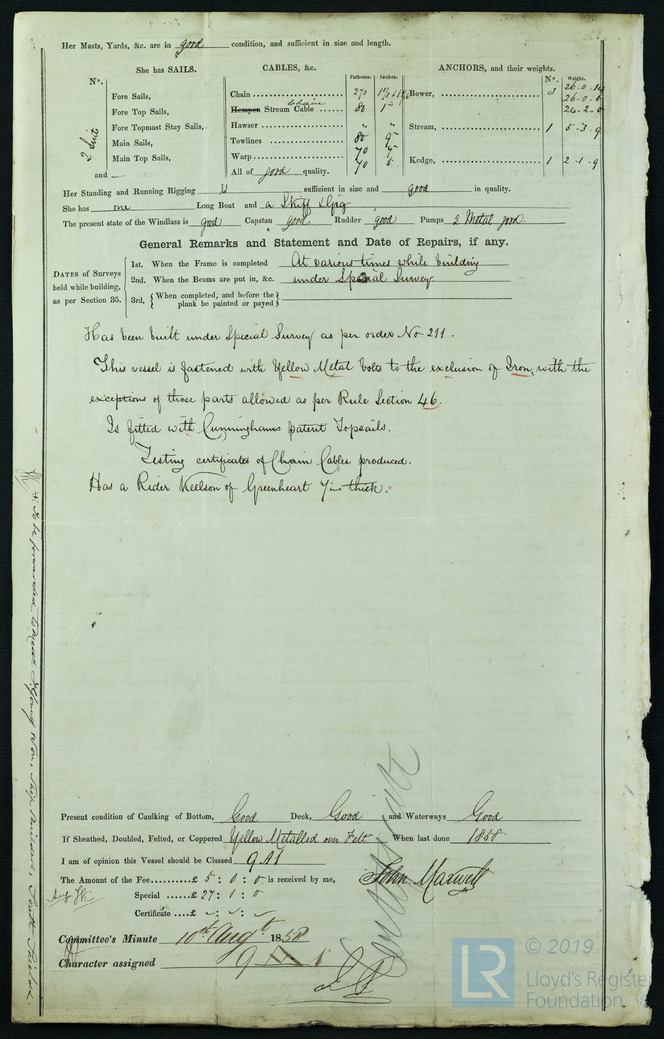 Her Masts, Yards, &c. are in good condition, and sufficient in size and length.
She has SAILS.
CABLES, &c.
Fathoms.
Inches.
ANCHORS, and their weights.
Nº.
Weight.
Nº.
2 Suits
Fore Sails,
Fore Top Sails,
Fore Topmast Stay Sails,
Main Sails,
Main Top Sails,
and —
Chain 270
Hempen Chain Stream Cable 80 1
Hawser " "
Towlines 80 9
Warp 70 7
70 5
All of good quality.
Bower, 3 26-0-14
26-0-0
24-2-0
Stream, 1 5-3-9
Kedge, 1 2-1-9
Her Standing and Running Rigging is sufficient in size and good in quality.
She has one Long Boat and a Skiff & Gig
The present state of the Windlass is good Capstan good Rudder good Pumps 2 Metal good.
General Remarks and Statement and Date of Repairs, if any.
DATES of Surveys held while building, as per Section 35.
1st. When the Frame is completed At various times while building
2nd. When the Beams are put in, &c. under Special Survey.
3rd. { When completed, and before the plank be painted or payed }
Has been built under Special Survey as per order No 211.
This vessel is fastened with Yellow Metal bolts to the exclusion of Iron, with the
exceptions of those parts allowed as per Rule Section 46.
Is fitted with Cunninghams patent Topsails.
Testing certificates of Chain Cables produced.
Has a Rider Keelson of Greenheart 7 ins thick.
Present condition of Caulking of Bottom, Good Deck, Good and Waterways Good
If Sheathed, Doubled, Felted, or Coppered Yellow Metalled over Felt When last done 1858
I am of opinion this Vessel should be Classed 9 A1
The Amount of the Fee £ 5 : 0 : 0 is received by me,
John Maxwell
Special £ 27 : 1 : 0
Certificate £ - : - : -
Committee's Minute 10th Augt 1858
Character assigned 9
© 2019
LR
Lloyd's Register
Foundation